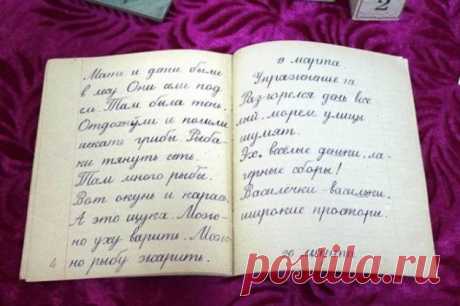 Мати и дати были
в лесу Они сели под
ель. Там была тень.
Отдохнули и пошли
искать грибы. Рыба-
ки тянуть сеть.
Там много рыбы.
Вот окунь и карась.
А это щука. Можно-
но уху варить. Мож-
но рыбу жарить.
4
19 марта
Упражнение
Разгорелся день весе
лый, морем улицы
шумят.
Эх, весёлые деньки, ла-
герные сборы!
Василёчки-васильки,
широкие просторы.
20 марта
2
postila.ru